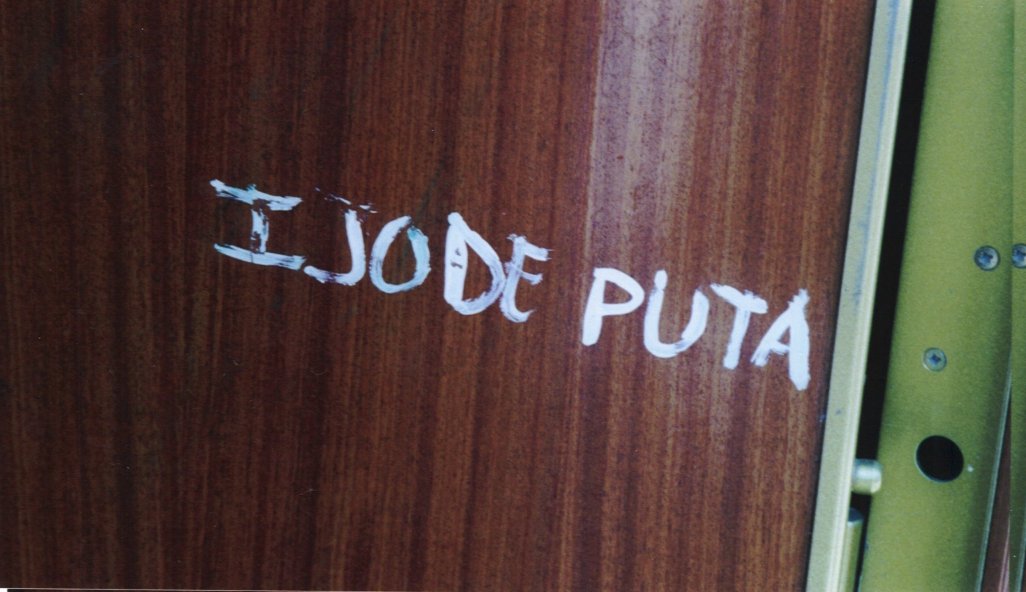 IJODE PUTA